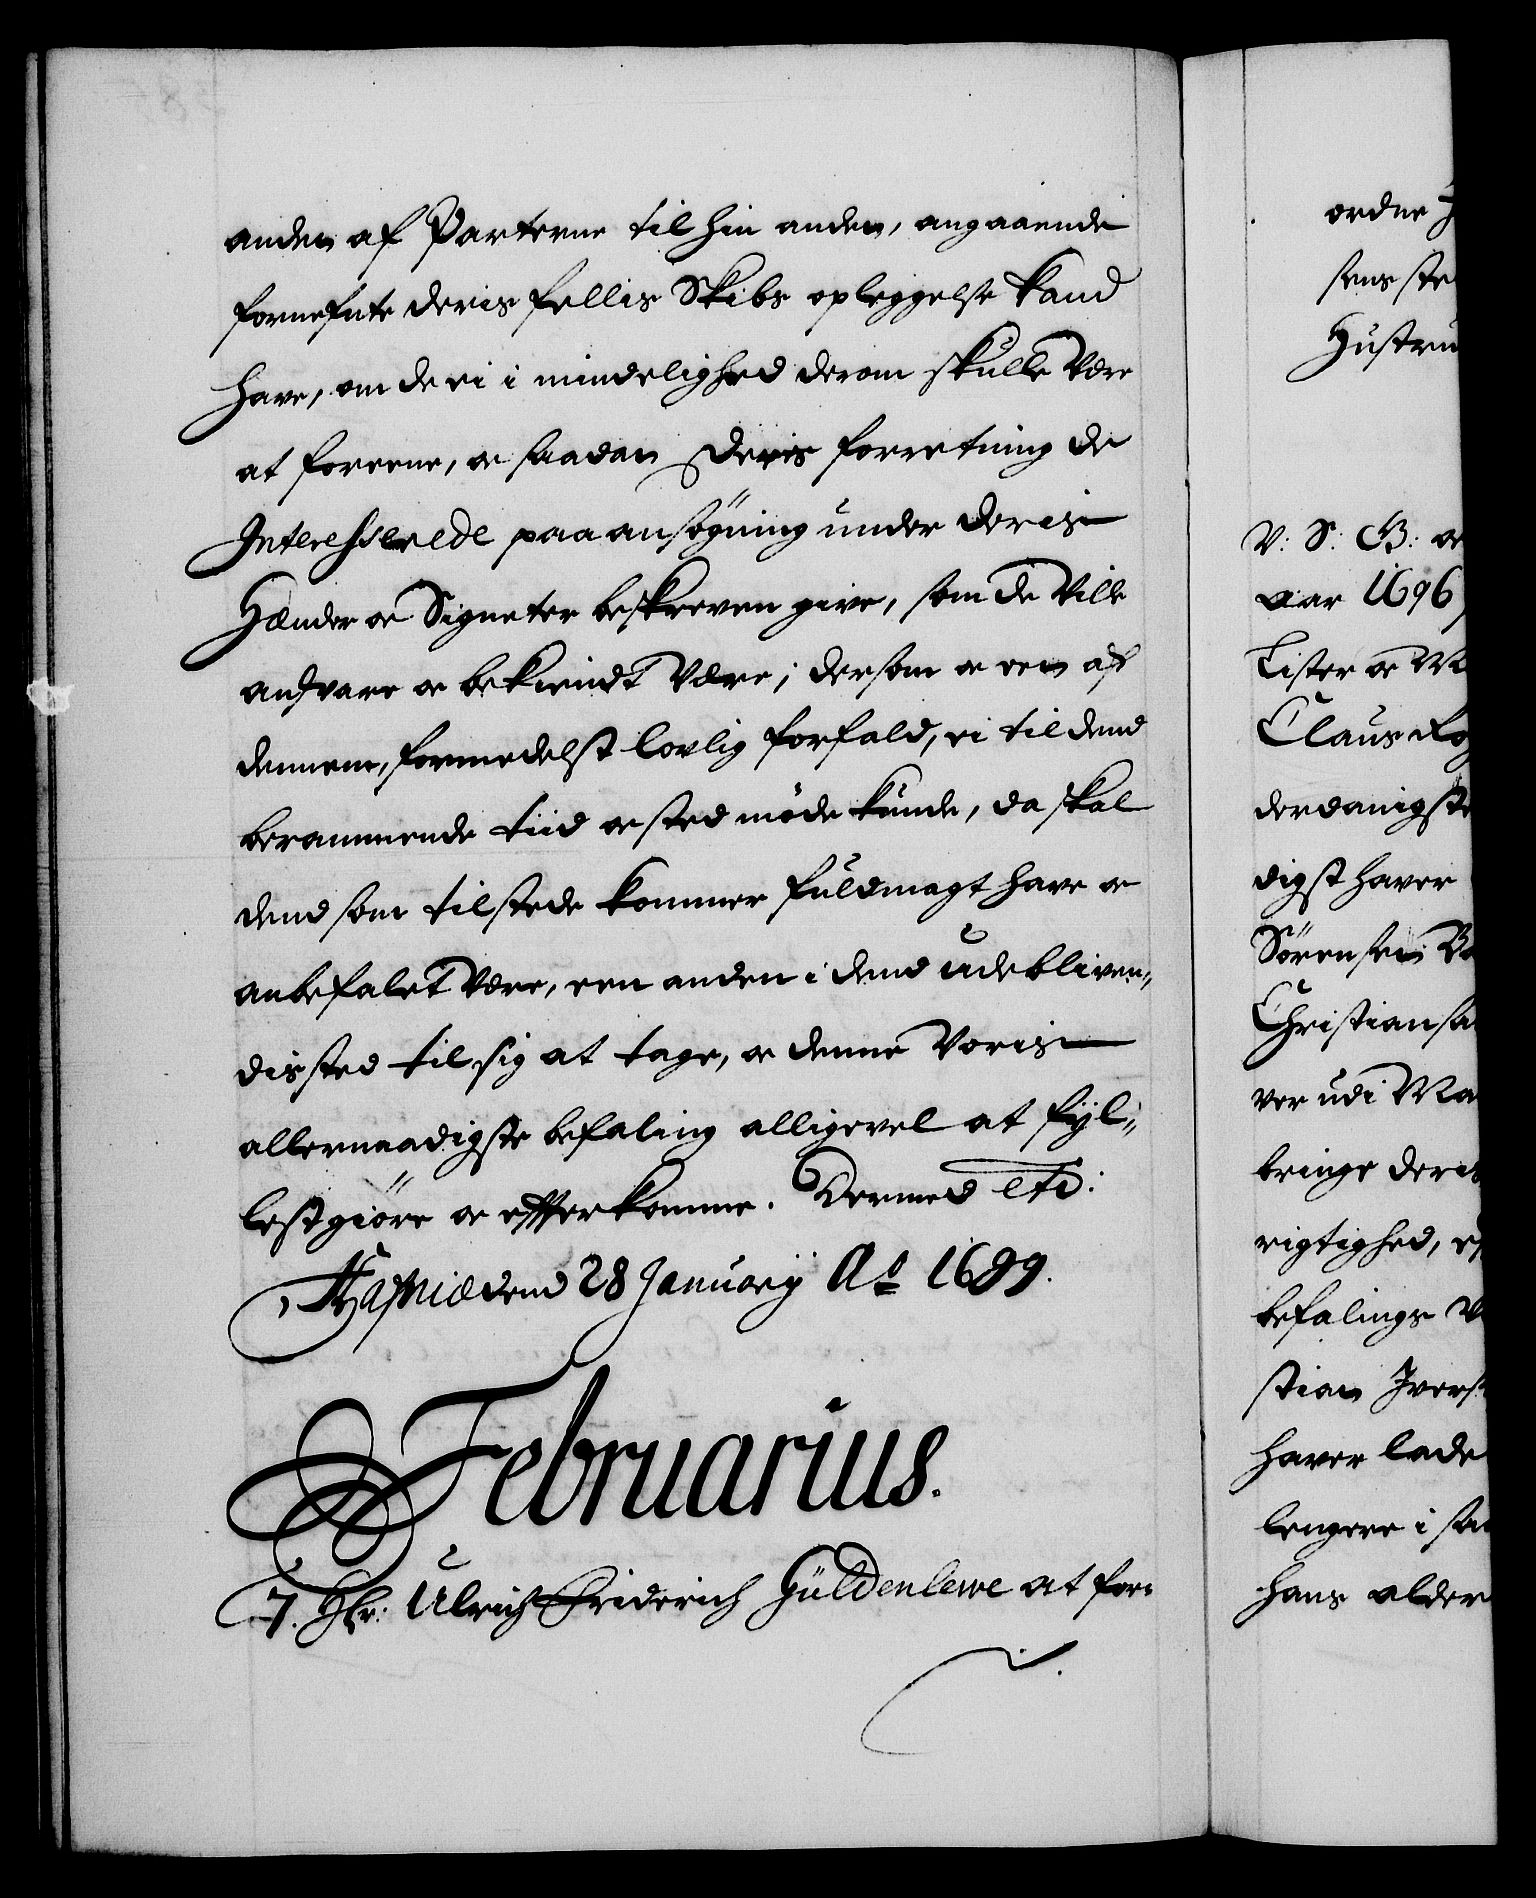 anden af Parterne til hin anden, angaaende
fornefnte deris fellis Skibs opleggelse kand
have, om de ei i mindelighed derom skulle være
at foreene, oc saadan deris forretning de
Interesserede paa ansøgning under deris
Hænder oc Signeter beskreven give, som de ville
andsvare oc bekiendt være; dersom oc een af
dennem, formedelst lovlig forfald, ei til dend
berammende tiid oc sted møde kunde, da skal
dend som tilstede kommer fuldmagt have oc
anbefalet være, een anden i dend udebliven„
dis sted til sig at tage, oc denne Voris
allernaadigste befaling alligevel at fyl„
lestgiøre oc efterkomme. Dermed etc:
Hafniæ dend 28 Januarij Ao 1699.
Februarius.
7. Hr: Ulrich Friderich Güldenlewe at for„
ordne
sens ste
Hustru
V: S: G: oc
aar 1696
Lister oc Ma
Claus
derdanigste
digst haver
Sørensen
Christiansa
ver udi Ma
bringe deris
rigtighed,
befalings
stian Ivers
haver lade
lengere i saa
hans alder